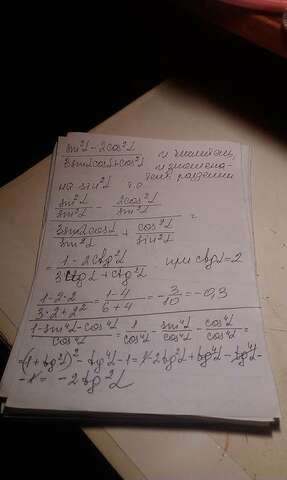 sin²α - 2cos²α
3sinαcosα+cos²α и числитель,
и знамена-
тель разделим
на sin²α т.о.
sin²α/sin²α - 2cos²α/sin²α
3sinαcosα/sin²α + cos²α/sin²α =
1 - 2ctg²α
3ctgα + ctg²α при ctgα=2
1-2·2/3·2+2² = 1-4/6+4 = -3/10 = -0,3
1-sin⁴α-cos⁴α/cos⁴α = 1/cos⁴α - sin⁴α/cos⁴α - cos⁴α/cos⁴α =
(1+tg²α)² - tg⁴α - 1 = 1+2tg²α + tg⁴α - tg⁴α
-1 = -2tg²α